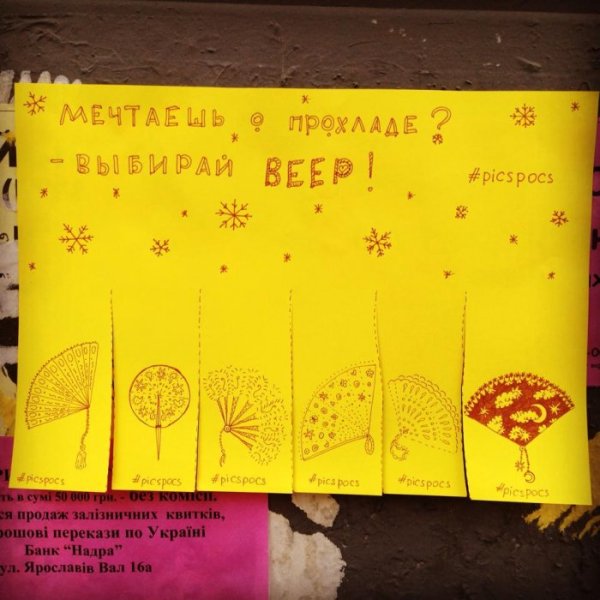 МЕЧТАЕШЬ О ПРОХЛАДЕ?
- ВЫБИРАЙ ВЕЕР!
#picspocs
#picspocs
#picspocs
#picspocs
#picspocs
#picspocs
#picspocs
ть в сумі 50 000 грн. - без комісії.
ся продаж залізничних квитків,
рошові перекази по Україні
Банк "Надра"
ул. Ярославів Вал 16а